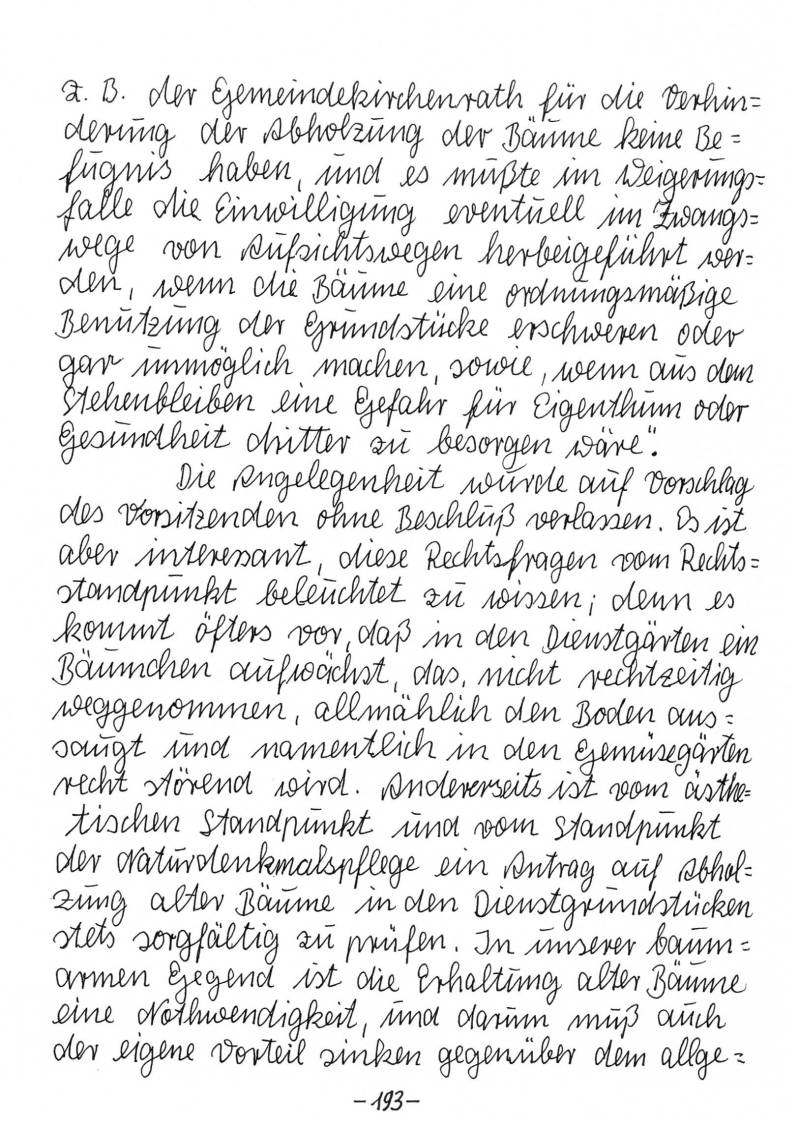 z. B. der Gemeindekirchenrath für die Verhin=
derung der Abholzung der Bäume keine Be=
fugnis haben, und es müßte im Weigerungs=
falle die Einwilligung eventuell im Zwangs=
wege von Aufsichtswegen herbeigeführt wer=
den, wenn die Bäume eine ordnungsmäßige
Benutzung der Grundstücke erschweren oder
gar unmöglich machen, sowie, wenn aus dem
Stehenbleiben eine Gefahr für Eigenthum oder
Gesundheit dritter zu besorgen wäre".
Die Angelegenheit wurde auf Vorschlag
des Vorsitzenden ohne Beschluß verlassen. Es ist
aber interessant, diese Rechtsfragen vom Rechts=
standpunkt beleuchtet zu wissen; denn es
kommt öfters vor, daß in den Dienstgärten ein
Bäumchen aufwächst, das, nicht rechtzeitig
weggenommen, allmählich den Boden aus=
saugt und namentlich in den Gemüsegärten
recht störend wird. Andererseits ist vom ästhe=
tischen Standpunkt und vom Standpunkt
der Naturdenkmalspflege ein Antrag auf Abhol=
zung alter Bäume in den Dienstgrundstücken
stets sorgfältig zu prüfen. In unserer baum=
armen Gegend ist die Erhaltung alter Bäume
eine Nothwendigkeit, und darum muß auch
der eigene Vorteil sinken gegenüber dem allge=
-193-